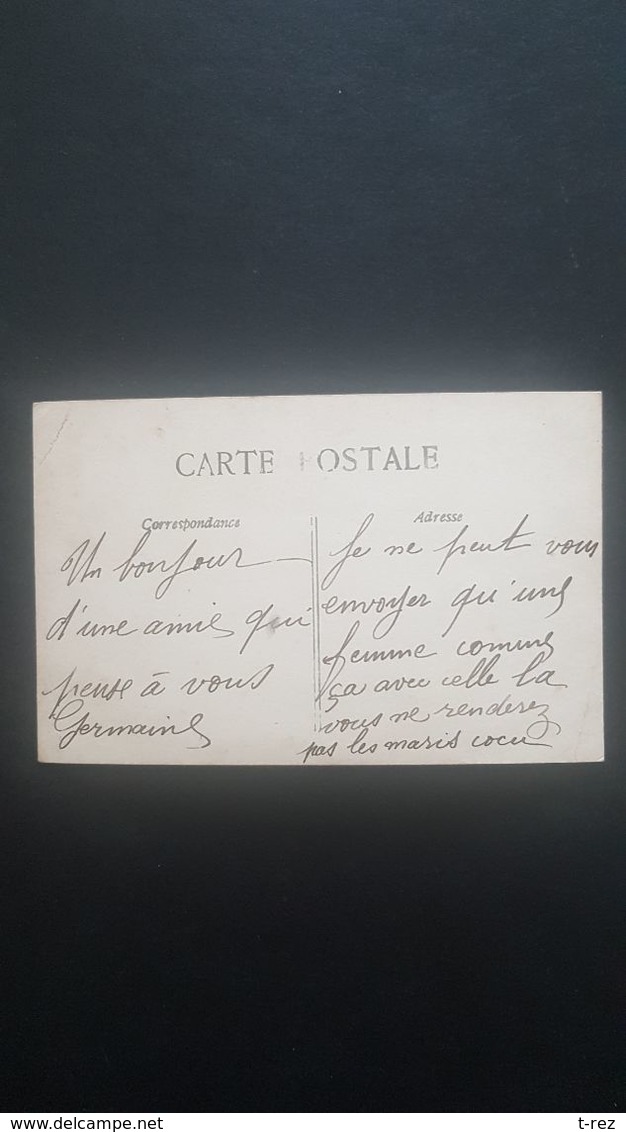 CARTE POSTALE
Correspondance
Un bonjour
d'une amie qui
pense à vous
Germaine
Adresse
Je ne peut vous
envoyer qu'une
femme comme
ça avec celle la
vous ne renderez
pas les maris cocu
delcampe.net
t-rez